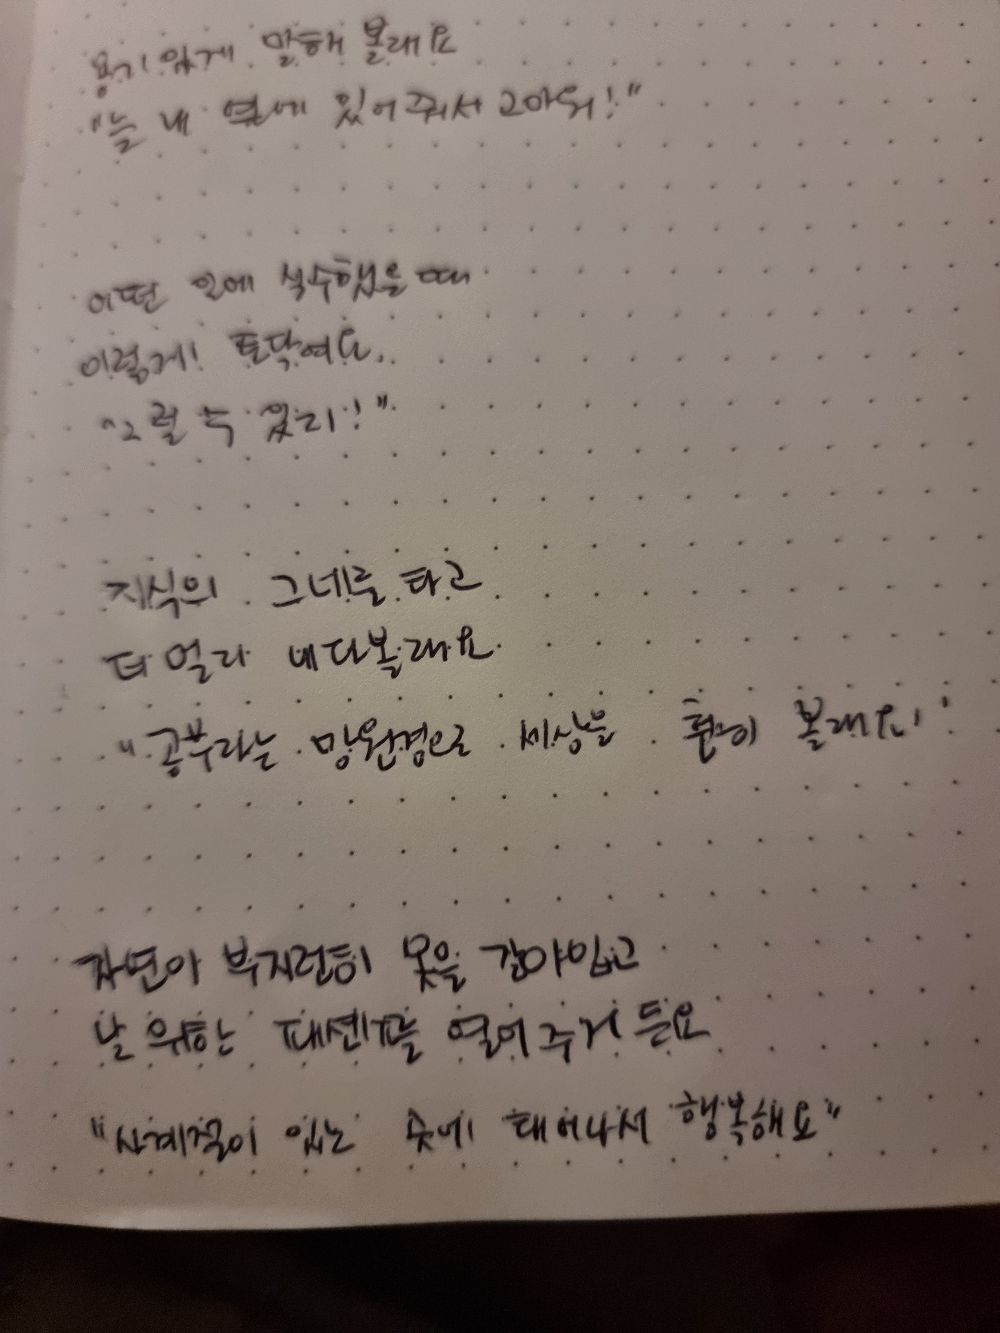 용기있게 말해 볼래요
"늘 내 옆에 있어줘서 고마워!"
어떤 일에 실수했을 때
이렇게! 토닥여요.
"그럴 수 있지!"
지식의 그네를 타고
더 멀리 내다볼래요
"공부라는 망원경으로 세상을 훤히 볼래요!"
자연이 부지런히 옷을 갈아입고
날 위한 패션쇼를 열어주거든요
"사계절이 있는 곳에 태어나서 행복해요"